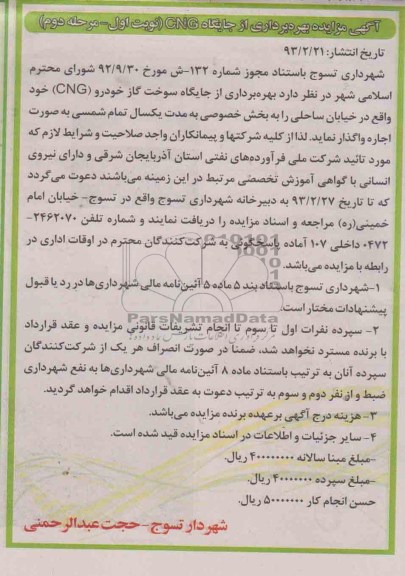 آگهی مزایده بهره‌برداری از جایگاه CNG (نوبت اول- مرحله دوم)
تاریخ انتشار: ۹۳/۲/۲۱
شهرداری تسوج باستناد مجوز شماره ۱۳۲-ش مورخ ۹۲/۹/۳۰ شورای محترم
اسلامی شهر در نظر دارد بهره‌برداری از جایگاه سوخت گاز خودرو (CNG) خود
واقع در خیابان ساحلی را به بخش خصوصی به مدت یکسال تمام شمسی به صورت
اجاره واگذار نماید. لذا از کلیه شرکتها و پیمانکاران واجد صلاحیت و شرایط لازم که
مورد تائید شرکت ملی فرآورده‌های نفتی استان آذربایجان شرقی و دارای نیروی
انسانی با گواهی آموزش تخصصی مرتبط در این زمینه می‌باشند دعوت می‌گردد
که تا تاریخ ۹۳/۲/۲۷ به دبیرخانه شهرداری تسوج واقع در تسوج- خیابان امام
خمینی(ره) مراجعه و اسناد مزایده را دریافت نمایند و شماره تلفن ۲۴۶۲۰۷۰-
۰۴۷۲ داخلی ۱۰۷ آماده پاسخگوئی به شرکت‌کنندگان محترم در اوقات اداری در
رابطه با مزایده می‌باشد.
۱-شهرداری تسوج باستناد بند ۵ ماده ۵ آئین‌نامه مالی شهرداری‌ها در رد یا قبول
پیشنهادات مختار است.
ParsNamadData
۲- سپرده نفرات اول تا سوم تا انجام تشریفات قانونی مزایده و عقد قرارداد
با برنده مسترد نخواهد شد، ضمناً در صورت انصراف هر یک از شرکت‌کنندگان
سپرده آنان به ترتیب باستناد ماده ۸ آئین‌نامه مالی شهرداری‌ها به نفع شهرداری
ضبط و از نفر دوم و سوم به ترتیب دعوت به عقد قرارداد اقدام خواهد گردید.
۳- هزینه درج آگهی بر عهده برنده مزایده می‌باشد.
۴- سایر جزئیات و اطلاعات در اسناد مزایده قید شده است.
-مبلغ مبنا سالانه ۴۰۰۰۰۰۰۰۰ ریال.
-مبلغ سپرده ۴۰۰۰۰۰۰۰ ریال.
حسن انجام کار ۵۰۰۰۰۰۰۰ ریال.
شهردار تسوج- حجت عبدالرحمنی